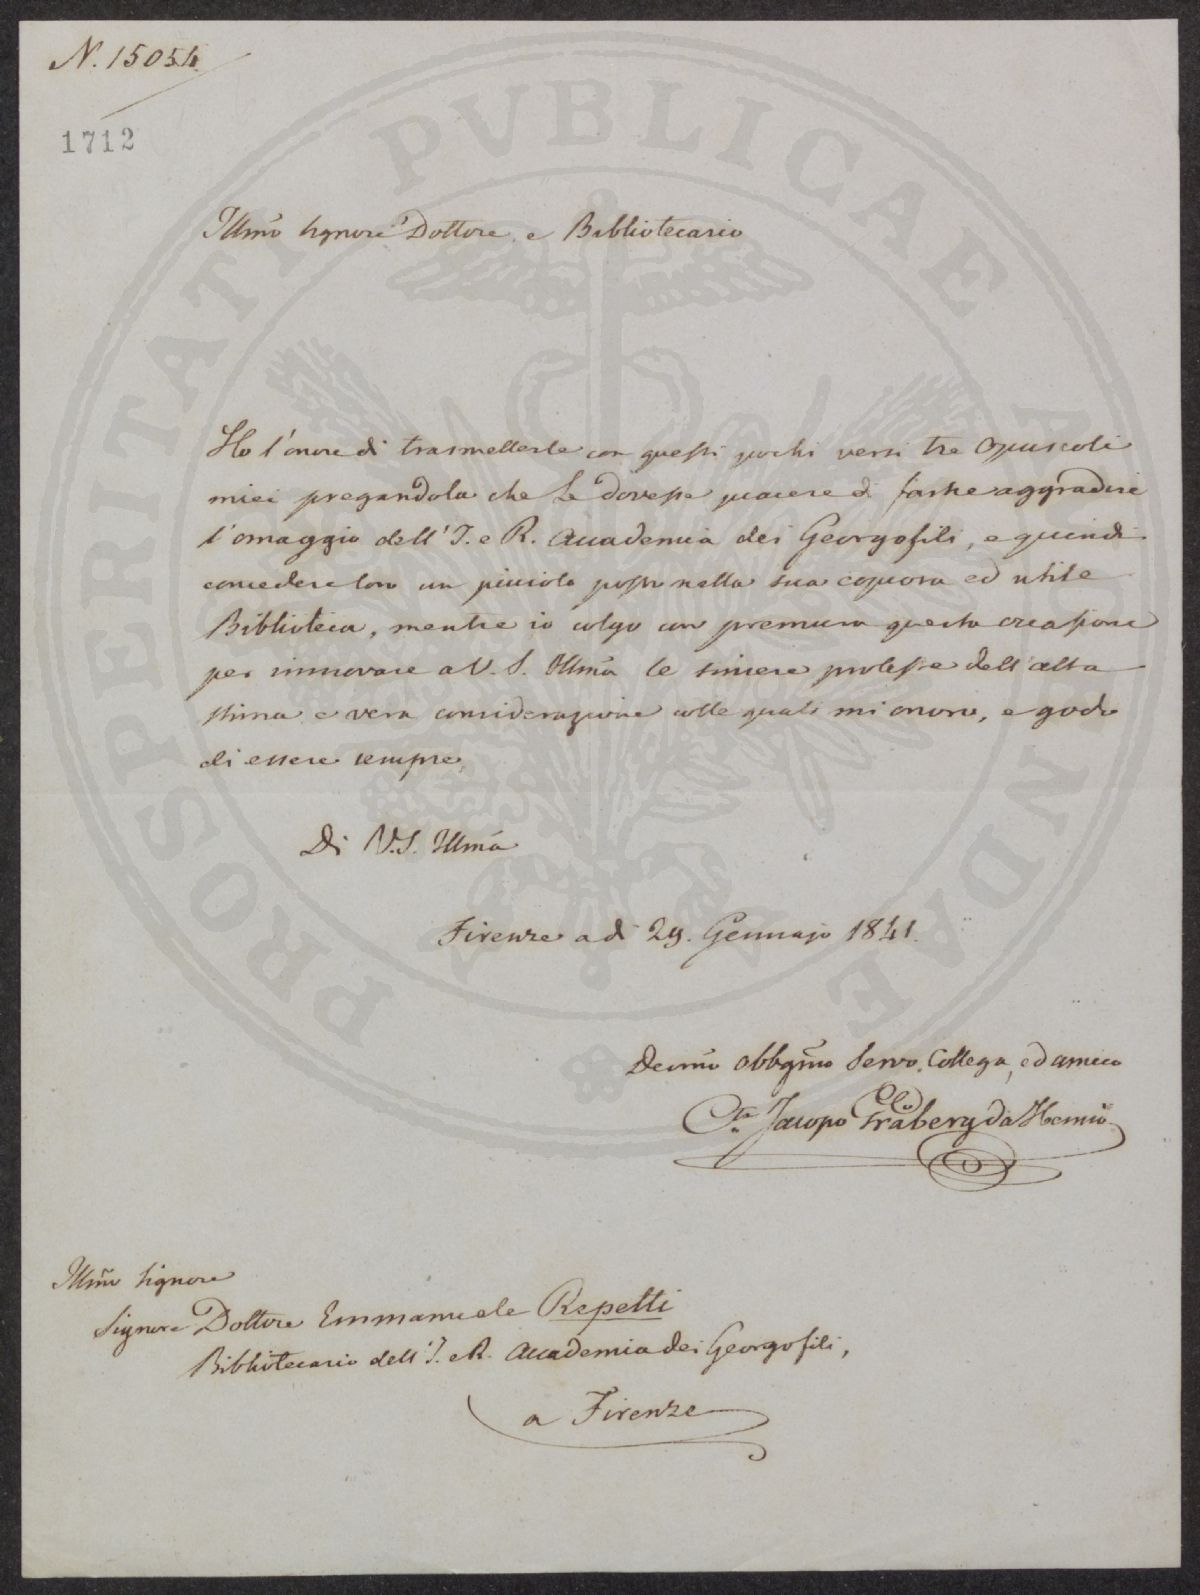 N. 15054
1712
Illmo Signore Dottore e Bibliotecario
Ho l'onore di trasmetterle con questi pochi versi tre Opuscoli
miei pregandola che Le dovesse piacere di farne aggradire
l'omaggio dell'I. e R. Accademia dei Georgofili, e quindi
concedere loro un picciolo posto nella sua copiosa ed utile
Biblioteca, mentre io colgo con premura questa occasione
per rinnovare a V. S. Illma le sincere proteste dell'alta
stima e vera considerazione colle quali mi onoro, e godo
di essere sempre,
Di V.S. Illma
Firenze a dì 29. Gennajo 1841.
Devmo obbgmo Servo, Collega, ed amico
Cte Jacopo Gråberg da Hemsö
Illmo Signore
Signore Dottore Emmanuele Repetti
Bibliotecario dell'I. e R. Accademia dei Georgofili,
a Firenze
PROSPERITATI PVBLICAE AVGENDAE